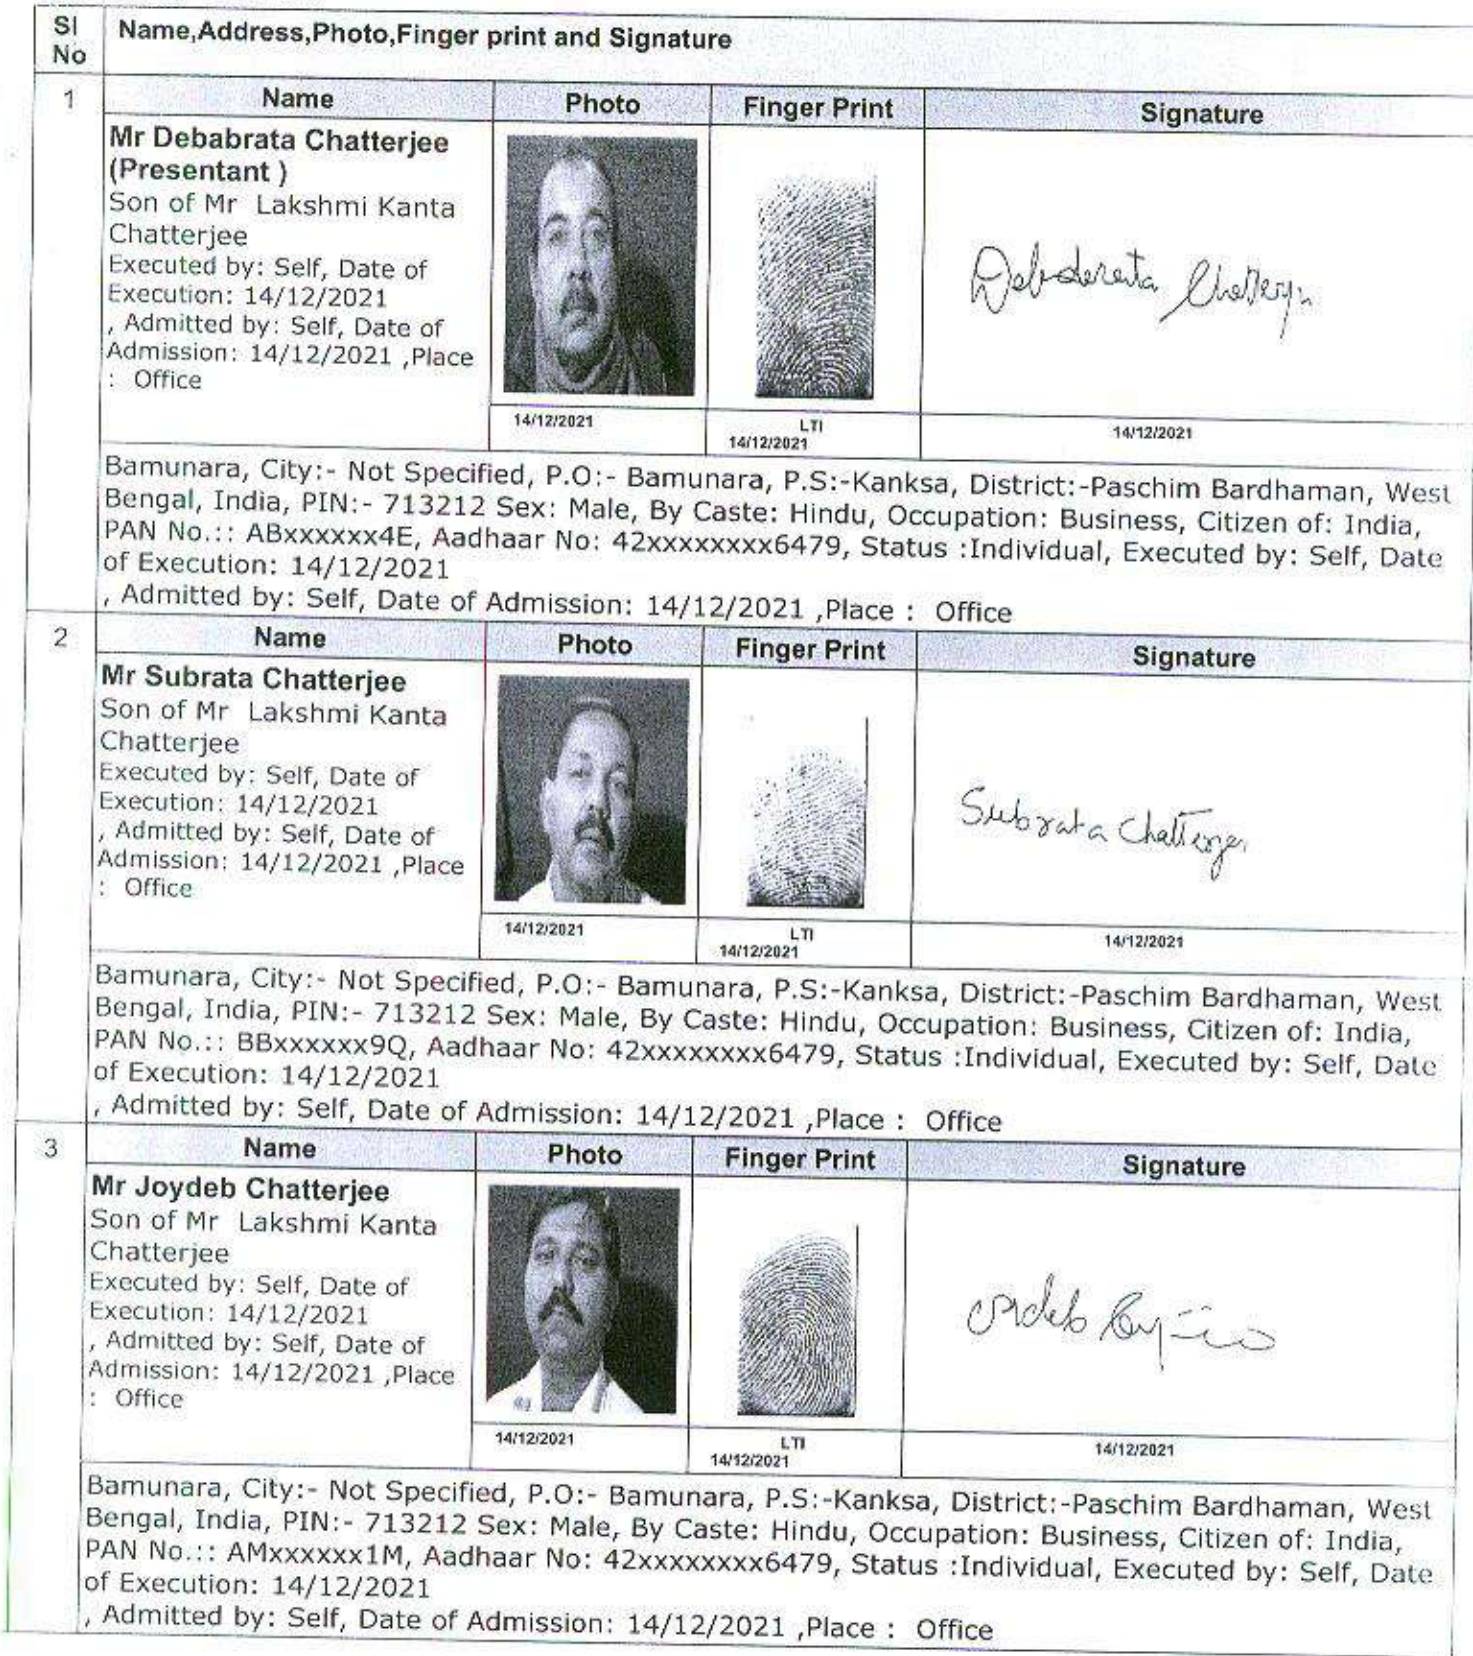 Sl No
Name,Address,Photo,Finger print and Signature
1
Name Photo Finger Print Signature
Mr Debabrata Chatterjee
(Presentant )
Son of Mr Lakshmi Kanta
Chatterjee
Executed by: Self, Date of
Execution: 14/12/2021
, Admitted by: Self, Date of
Admission: 14/12/2021 ,Place
: Office
Debabrata Chatterjee
14/12/2021
LTI
14/12/2021
14/12/2021
Bamunara, City:- Not Specified, P.O:- Bamunara, P.S:-Kanksa, District:-Paschim Bardhaman, West
Bengal, India, PIN:- 713212 Sex: Male, By Caste: Hindu, Occupation: Business, Citizen of: India,
PAN No.:: ABxxxxxx4E, Aadhaar No: 42xxxxxxxx6479, Status :Individual, Executed by: Self, Date
of Execution: 14/12/2021
, Admitted by: Self, Date of Admission: 14/12/2021 ,Place : Office
2
Name Photo Finger Print Signature
Mr Subrata Chatterjee
Son of Mr Lakshmi Kanta
Chatterjee
Executed by: Self, Date of
Execution: 14/12/2021
, Admitted by: Self, Date of
Admission: 14/12/2021 ,Place
: Office
Subrata Chatterjee
14/12/2021
LTI
14/12/2021
14/12/2021
Bamunara, City:- Not Specified, P.O:- Bamunara, P.S:-Kanksa, District:-Paschim Bardhaman, West
Bengal, India, PIN:- 713212 Sex: Male, By Caste: Hindu, Occupation: Business, Citizen of: India,
PAN No.:: BBxxxxxx9Q, Aadhaar No: 42xxxxxxxx6479, Status :Individual, Executed by: Self, Date
of Execution: 14/12/2021
, Admitted by: Self, Date of Admission: 14/12/2021 ,Place : Office
3
Name Photo Finger Print Signature
Mr Joydeb Chatterjee
Son of Mr Lakshmi Kanta
Chatterjee
Executed by: Self, Date of
Execution: 14/12/2021
, Admitted by: Self, Date of
Admission: 14/12/2021 ,Place
: Office
14/12/2021
LTI
14/12/2021
14/12/2021
Bamunara, City:- Not Specified, P.O:- Bamunara, P.S:-Kanksa, District:-Paschim Bardhaman, West
Bengal, India, PIN:- 713212 Sex: Male, By Caste: Hindu, Occupation: Business, Citizen of: India,
PAN No.:: AMxxxxxx1M, Aadhaar No: 42xxxxxxxx6479, Status :Individual, Executed by: Self, Date
of Execution: 14/12/2021
, Admitted by: Self, Date of Admission: 14/12/2021 ,Place : Office